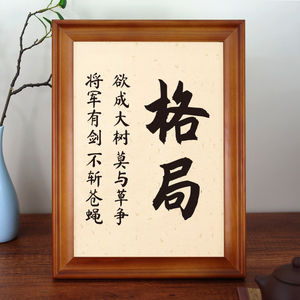 格局
欲成大树 莫与草争
将军有剑 不斩苍蝇